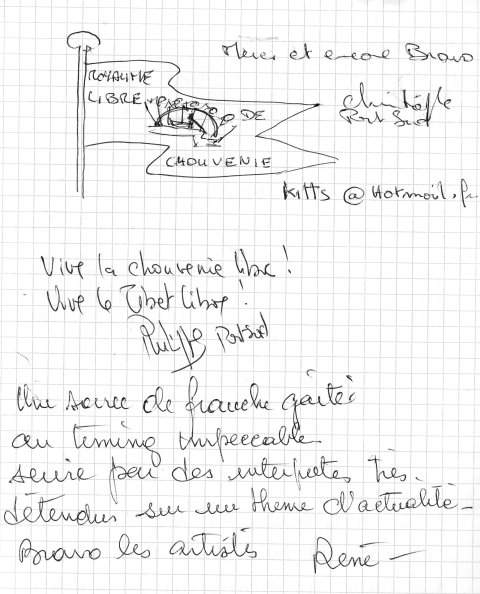 Merci et encore Bravo
ROYAUME
LIBRE
DE
CHOUVENIE
Christophe
Port Sud
Kitts@Hotmail.fr
Vive la chouvenie libre !
Vive le Tibet libre !
Philippe Port Sud
Une soirée de franche gaîté
au timing impeccable
servie par des interpretes très
détendus sur un theme d'actualité -
Bravo les artistes René -